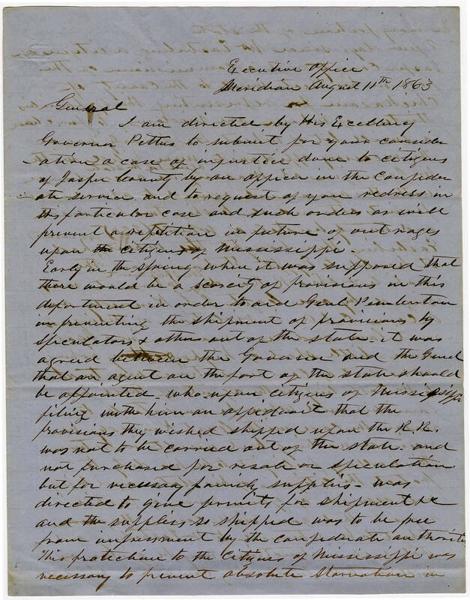 Executive Office
Meridian August 11th 1863
General
I am directed by His Excellency
Governor Pettus to submit for your consider
ation a case of injustice done to citizens
of Jasper County by an officer in the Confeder
ate service and to request of you redress in
this particular case and such orders as will
prevent a repetition in future of outrages
upon the citizens of Mississippi
Early in the Spring when it was supposed that
there would be a scarcity of provisions in this
department in order to aid Genl Pemberton
in preventing the shipment of provisions by
speculators & others out of the state. it was
agreed between the Governor and the Genl
that an agent on the part of the state should
be appointed who upon citizens of Mississippi
filing with him an affidavit that the
provisions they wished shipped upon the R.R.
was not to be carried out of the state. and
not purchased for resale or speculation
but for necessary family supplies. was
directed to give permits for shipment &c
and the supplies so shipped was to be free
from impressment by the confederate authorities
This protection to the Citizens of Mississippi was
necessary to prevent absolute starvation in